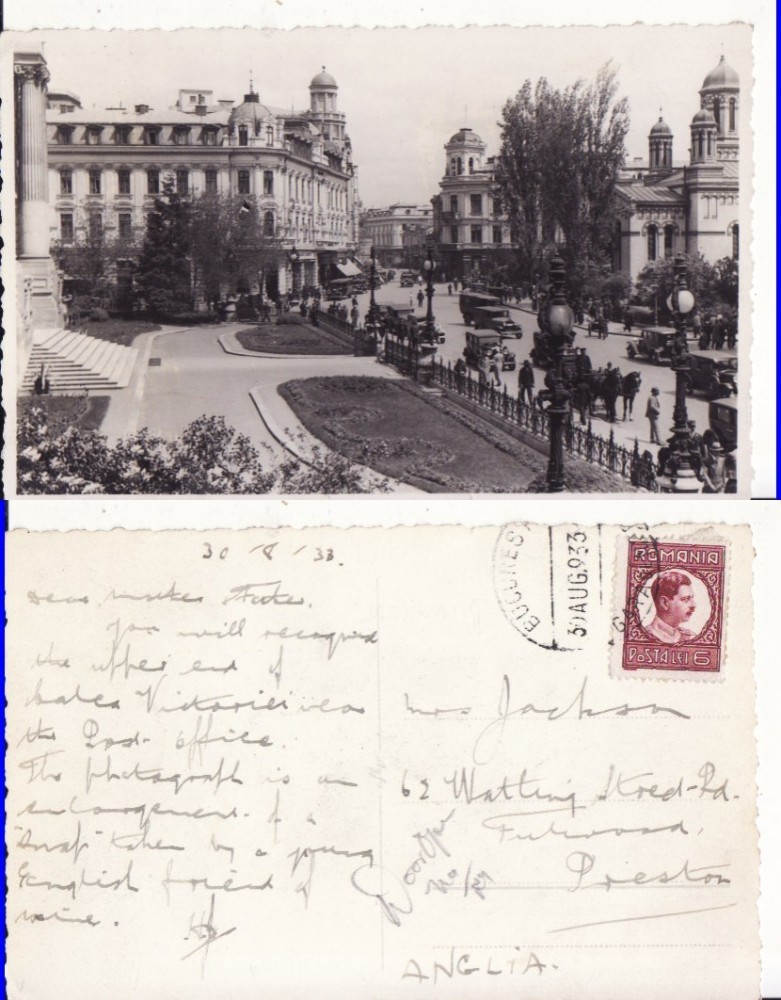 30/8/33.
BUCURES
30 AUG. 933
GARA
ROMANIA
POSTA LEI 6
Dear
You will recognize
the upper end of
Calea Victoriei near
the Post-office.
The photograph is an
enlargement of a
"snap" taken by a young
English friend of
mine.
Mrs Jackson
62 Watling Street-Rd.
Fulwood,
Preston
ANGLIA.